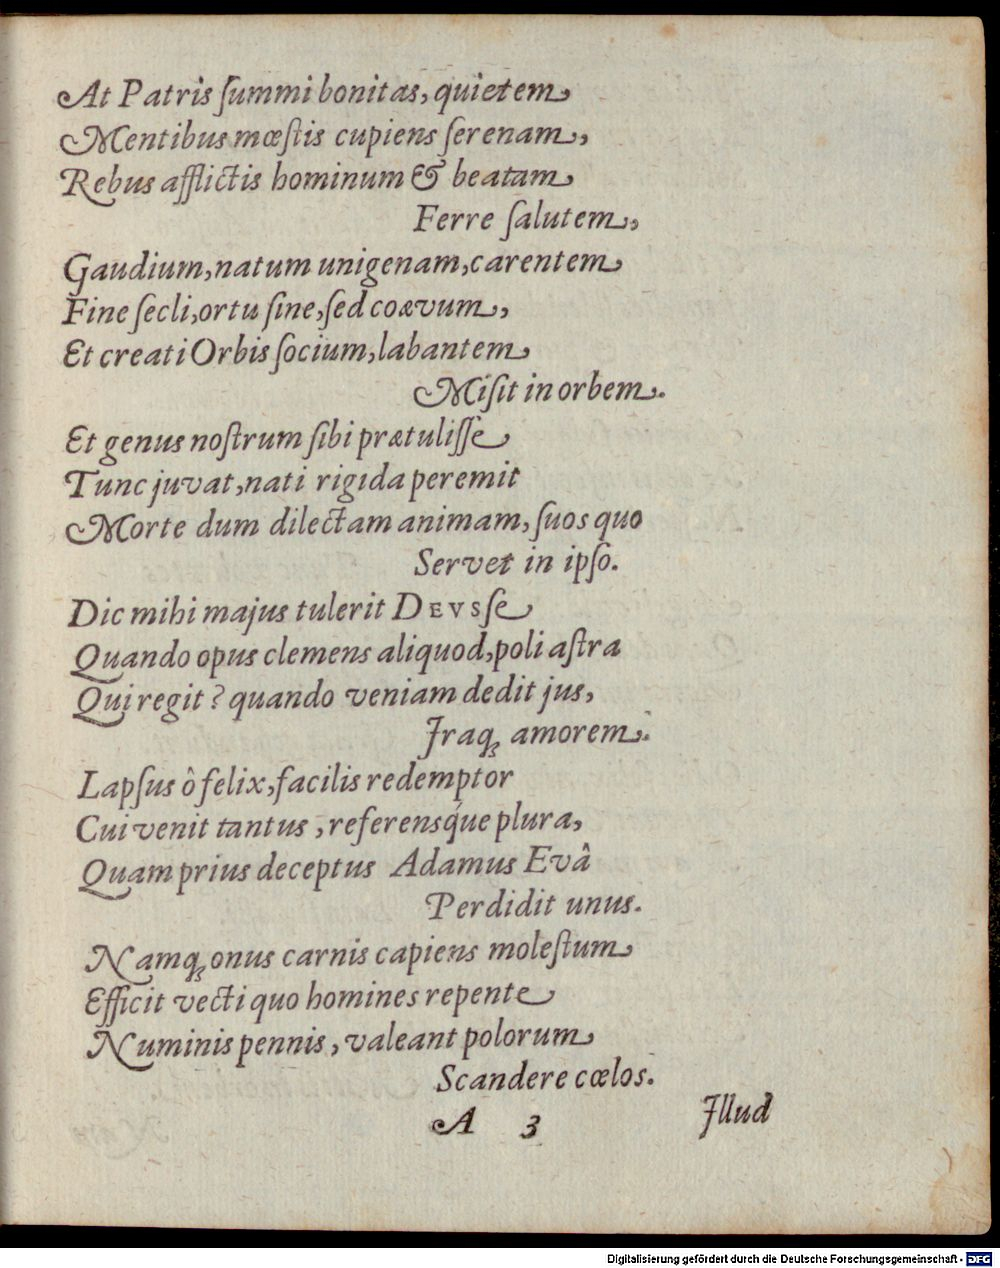 At Patris ſummi bonitas, quietem
Mentibus mœſtis cupiens ſerenam,
Rebus afflictis hominum & beatam
Ferre ſalutem,
Gaudium, natum unigenam, carentem
Fine ſecli, ortu ſine, ſed coævum,
Et creati Orbis ſocium, labantem
Miſit in orbem.
Et genus noſtrum ſibi prætuliſſe
Tunc juvat, nati rigida peremit
Morte dum dilectam animam, ſuos quo
Servet in ipſo.
Dic mihi majus tulerit DEVS ſe
Quando opus clemens aliquod, poli aſtra
Qui regit? quando veniam dedit jus,
Iraq́; amorem.
Lapſus ô felix, facilis redemptor
Cui venit tantus, referensq́ue plura,
Quam prius deceptus Adamus Evâ
Perdidit unus.
Namq; onus carnis capiens moleſtum
Efficit vecti quo homines repente
Numinis pennis, valeant polorum
Scandere cœlos.
A 3
Illud
Digitalisierung gefördert durch die Deutsche Forschungsgemeinschaft - DFG